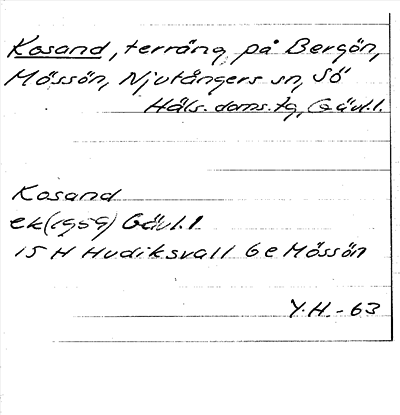 Kosand, terräng på Bergön,
Mössön, Njutångers sn, Sö
Häls. doms. tg, Gävl.l.
Kosand
ek(1959) Gävl.l
15 H Hudiksvall 6e Mössön
Y.H.-63